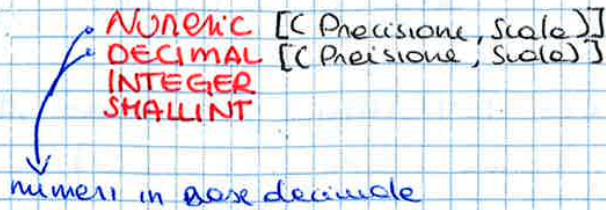 • NUMERIC [( Precisione, Scala)]
• DECIMAL [( Preisione, Scala)]
INTEGER
SMALLINT
numeri in base decimale